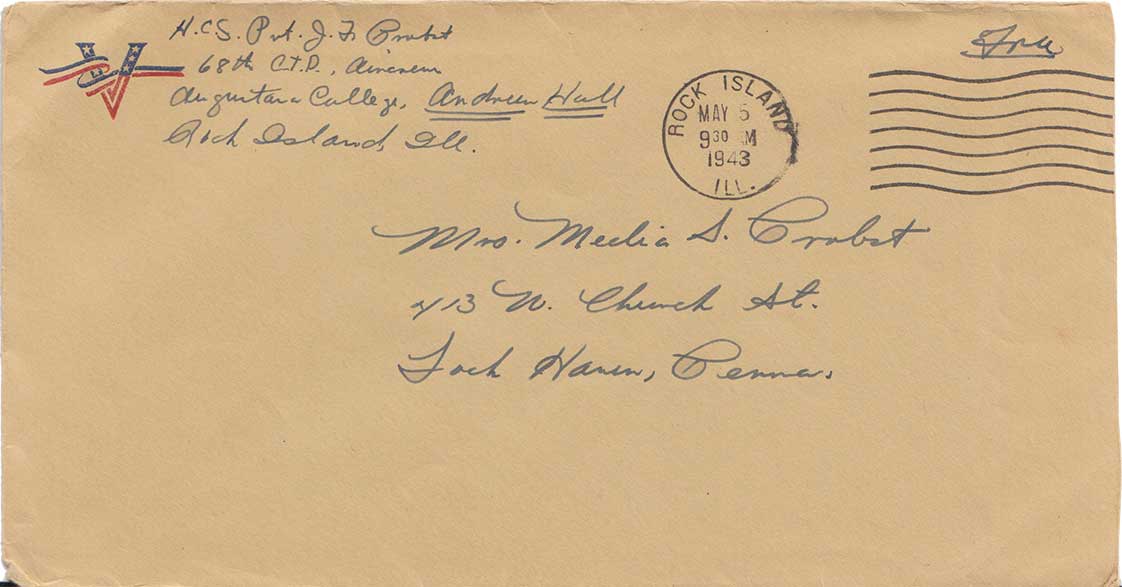 H.C.S. Pvt. J. F. Probst
68th C.T.D., Aircrew
Augustana College, Andreen Hall
Rock Island, Ill.
Free
ROCK ISLAND
MAY 5
9 30 M
1943
ILL.
Mrs. Media S. Probst
413 N. Church St.
Lock Haven, Penna.